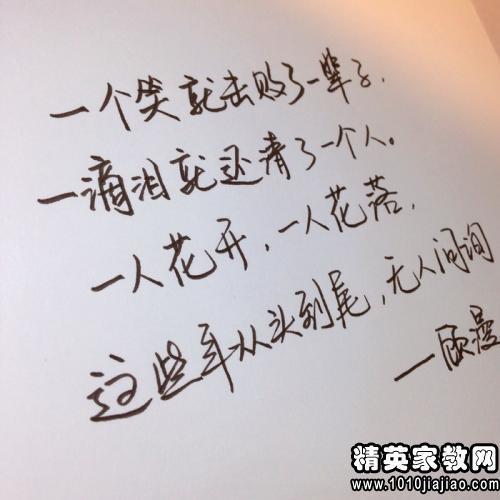 一个笑就击败了一辈子.
一滴泪就还清了一个人。
一人花开,一人花落,
这些年从头到尾,无人问询
—顾漫
精英家教网
www.1010jiajiao.com